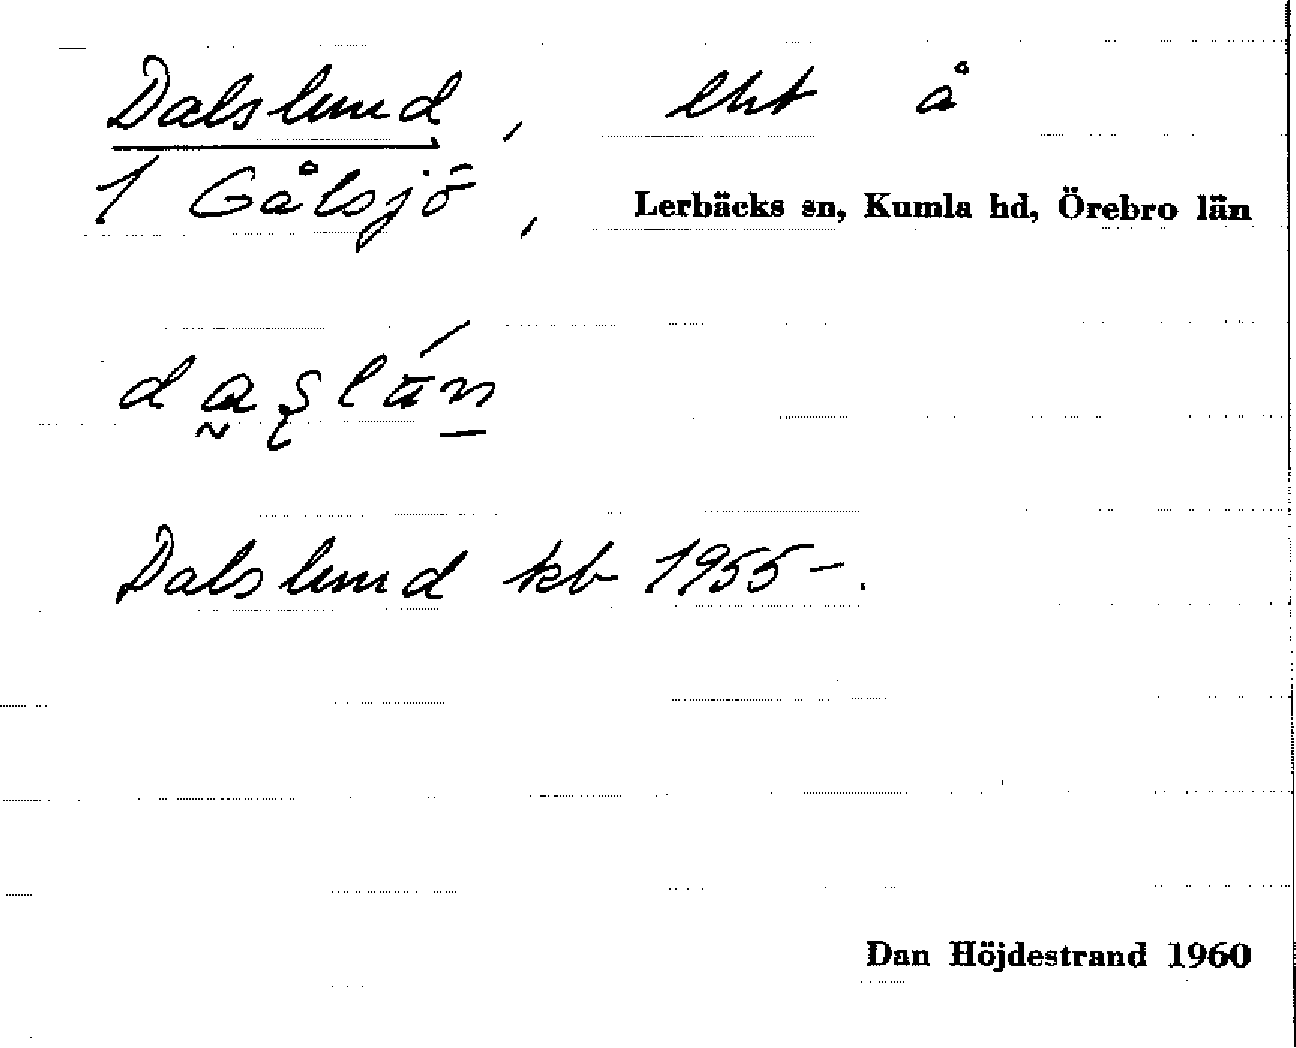 Dalslund, lht å
1 Gålsjö, Lerbäcks sn, Kumla hd, Örebro län
Dalslund kb 1955-.
Dan Höjdestrand 1960